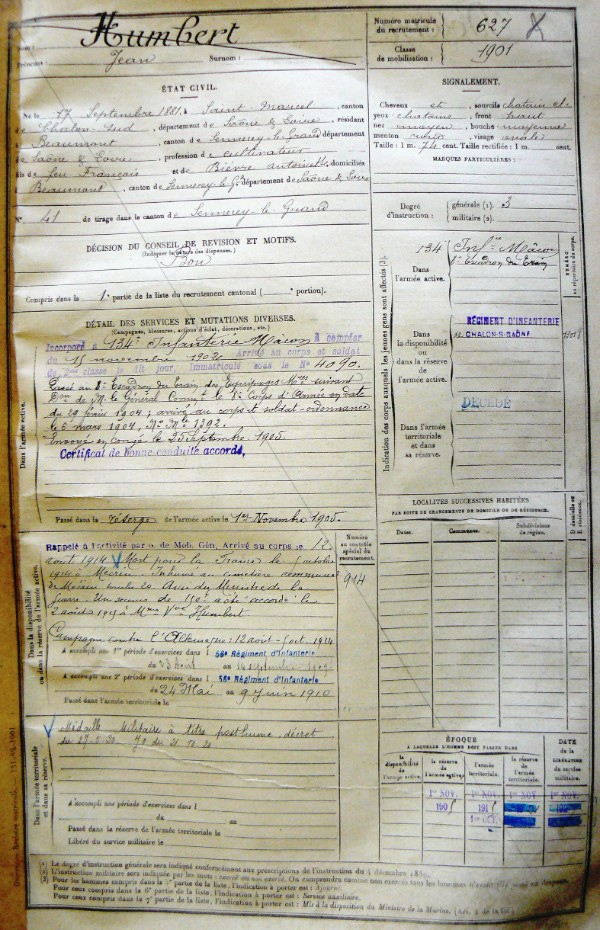 Nom :
Humbert
Prénoms :
Jean
Surnom :
Numéro matricule
du recrutement :
627
Classe
de mobilisation :
1901
ÉTAT CIVIL.
Né le 17 Septembre 1881, à Saint Marcel, canton
de Chalon-Sud, département de Saône & Loire, résidant
Beaumont, canton de Sennecey-le-Grand département
de Saône & Loire, profession de cultivateur
fils de feu François et de Bièvre Antoinette, domiciliés
Beaumont, canton de Sennecey-le-Gd département de Saône & Loire
N° 41 de tirage dans le canton de Sennecey-le-Grand
SIGNALEMENT.
Cheveux et sourcils chatain
yeux chatains, front haut
nez moyen, bouche moyenne
menton rond, visage ovale
Taille : 1 m. 74 cent. Taille rectifiée : 1 m. cent.
MARQUES PARTICULIÈRES :
Degré
d'instruction :
générale (1). 3
militaire (2).
DÉCISION DU CONSEIL DE REVISION ET MOTIFS.
Bon
Compris dans la 1e partie de la liste du recrutement cantonal ( portion).
DÉTAIL DES SERVICES ET MUTATIONS DIVERSES.
(Campagnes, blessures, actions d'éclat, décorations, etc.)
Dans l'armée active.
Incorporé à 134e Infanterie Mâcon à compter
du 15 novembre 1902 Arrivé au corps et soldat
de 2eme classe le dit jour, Immatriculé sous le N° 4090.
Passé au 8e Escadron du train des Équipages Mres suivant
Don de M. le Général Commt le 8e Corps d'Armée en date
du 29 février 1904; arrivé au corps et soldat-ordonnance
le 5 mars 1904, No Mle 1392.
Envoyé en congé le 23 Septembre 1905.
Certificat de bonne conduite accordé,
Passé dans la réserve de l'armée active le 1er Novembre 1905.
Indication des corps auxquels les jeunes gens sont affectés (3).
Dans
l'armée active.
134 Infie Mâcon
8e Escadron du Train
Dans
la disponibilité
ou dans la réserve
de l'armée active.
RÉGIMENT D'INFANTERIE
CHALON-S-SAÔNE
DÉCÉDÉ
Dans
l'armée territoriale
et dans
sa réserve.
LOCALITÉS SUCCESSIVES HABITÉES
PAR SUITE DE CHANGEMENTS DE DOMICILE OU DE RÉSIDENCE.
Dates.
Communes.
Subdivisions
de région.
D domicile ou
R résidence.
Dans la disponibilité
ou dans la réserve de l'armée active.
Rappelé à l'activité par o. de Mob. Gén. Arrivé au corps le 12
août 1914 Mort pour la France le 5 octobre
1914 à Mécrin Inhumé au cimetière communal
de Mécrin
Guerre. Un secours de 150f a été accordé le
2 août 1915 à Mme Vve Humbert
Campagne contre l'Allemagne : 12 août - 5 oct. 1914
Numéro
au contrôle
spécial du
recrutement.
914
A accompli une 1re période d'exercices dans l 56e Régiment d'Infanterie
du 23 Août au 14 septembre
A accompli une 2e période d'exercices dans l 56e Régiment d'Infanterie
du 24 Mai au 9 Juin 1910
Passé dans l'armée territoriale le
Dans l'armée territoriale
et dans sa réserve.
Médaille Militaire à titre posthume, décret
A accompli une période d'exercices dans l
du au
Passé dans la réserve de l'armée territoriale le
Libéré du service militaire le
ÉPOQUE
À LAQUELLE L'HOMME DOIT PASSER DANS
DATE
de la
LIBÉRATION
du service
militaire.
la
disponibilité
de l'armée active.
la réserve
de
l'armée active.
l'armée
territoriale.
la réserve
de
l'armée
territoriale.
1er NOV. 1er NOV. 1er NOV. 1er NOV.
1905
(1) Le degré d'instruction générale sera indiqué conformément aux prescriptions de l'instruction du 4 décembre 1889.
Pour ceux compris dans la 6e partie de la liste, l'indication à porter est : Service auxiliaire.
Pour ceux compris dans la 7e partie de la liste, l'indication à porter est : Mis à la disposition du Ministre de la Marine.